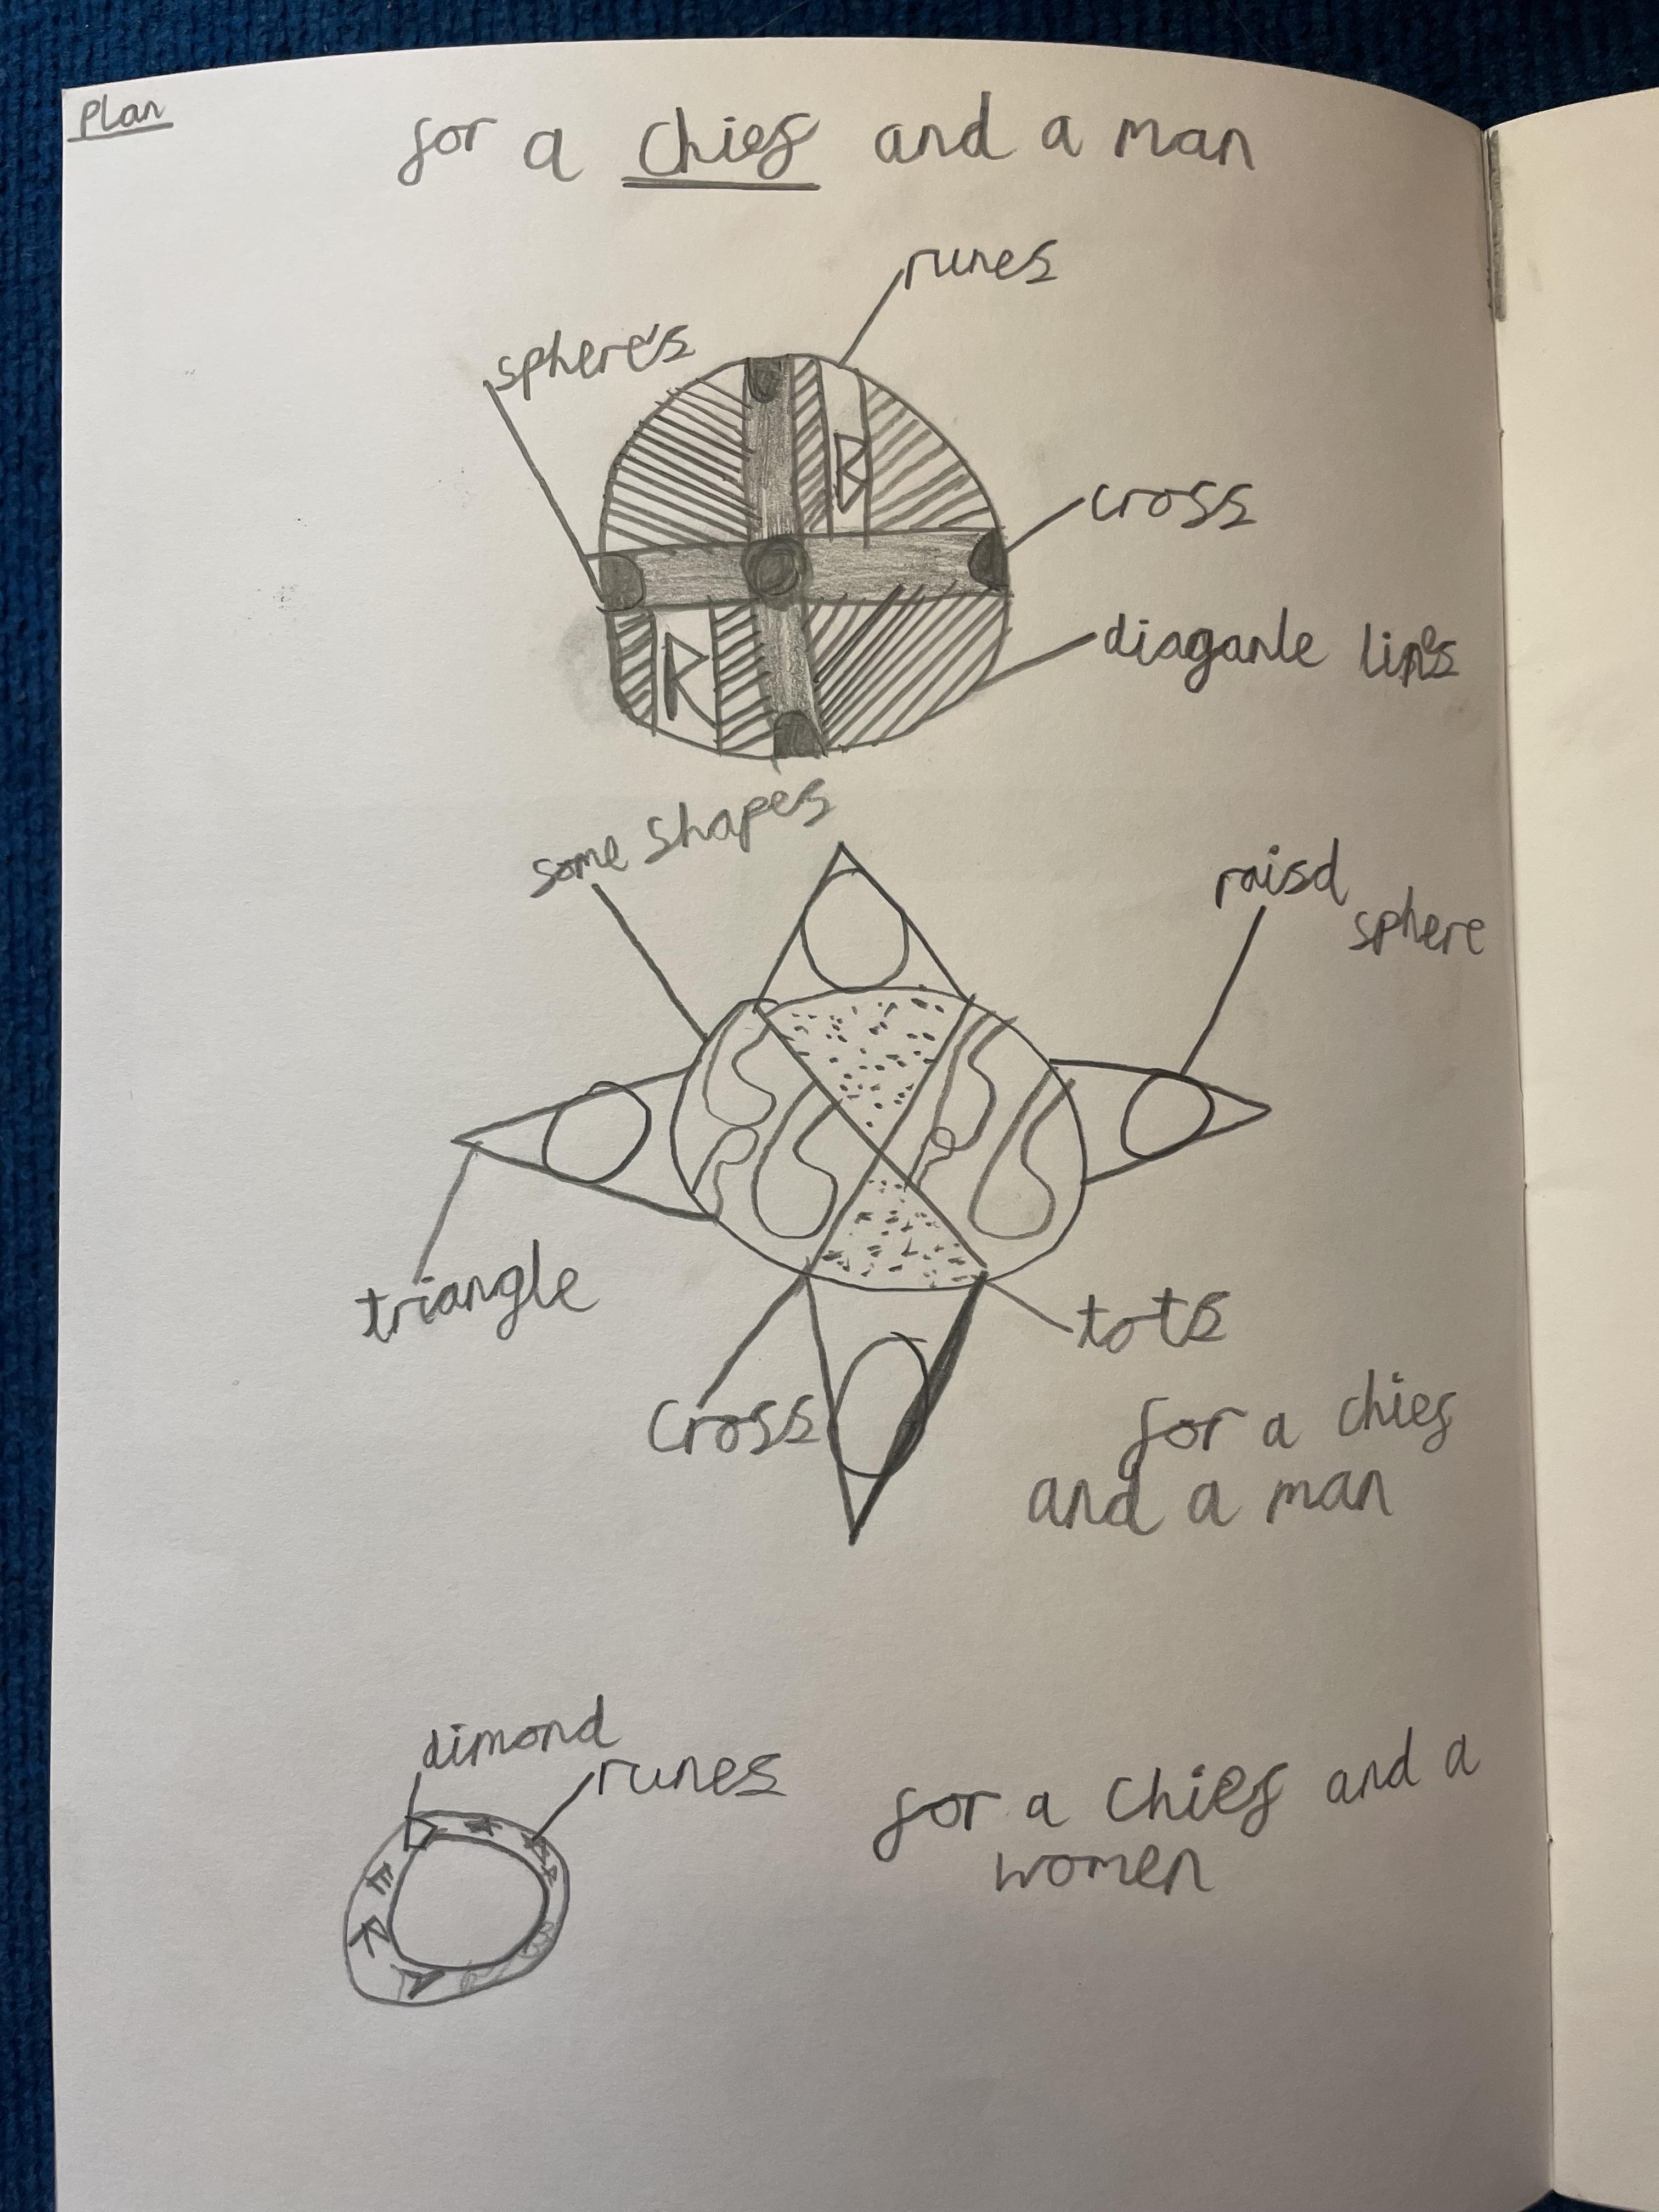 Plan
for a chief and a man
runes
sphere's
cross
diaganle lines
B
R
some shapes
raisd
sphere
triangle
tots
Cross
for a chief
and a man
dimond
runes
for a chief and a
women